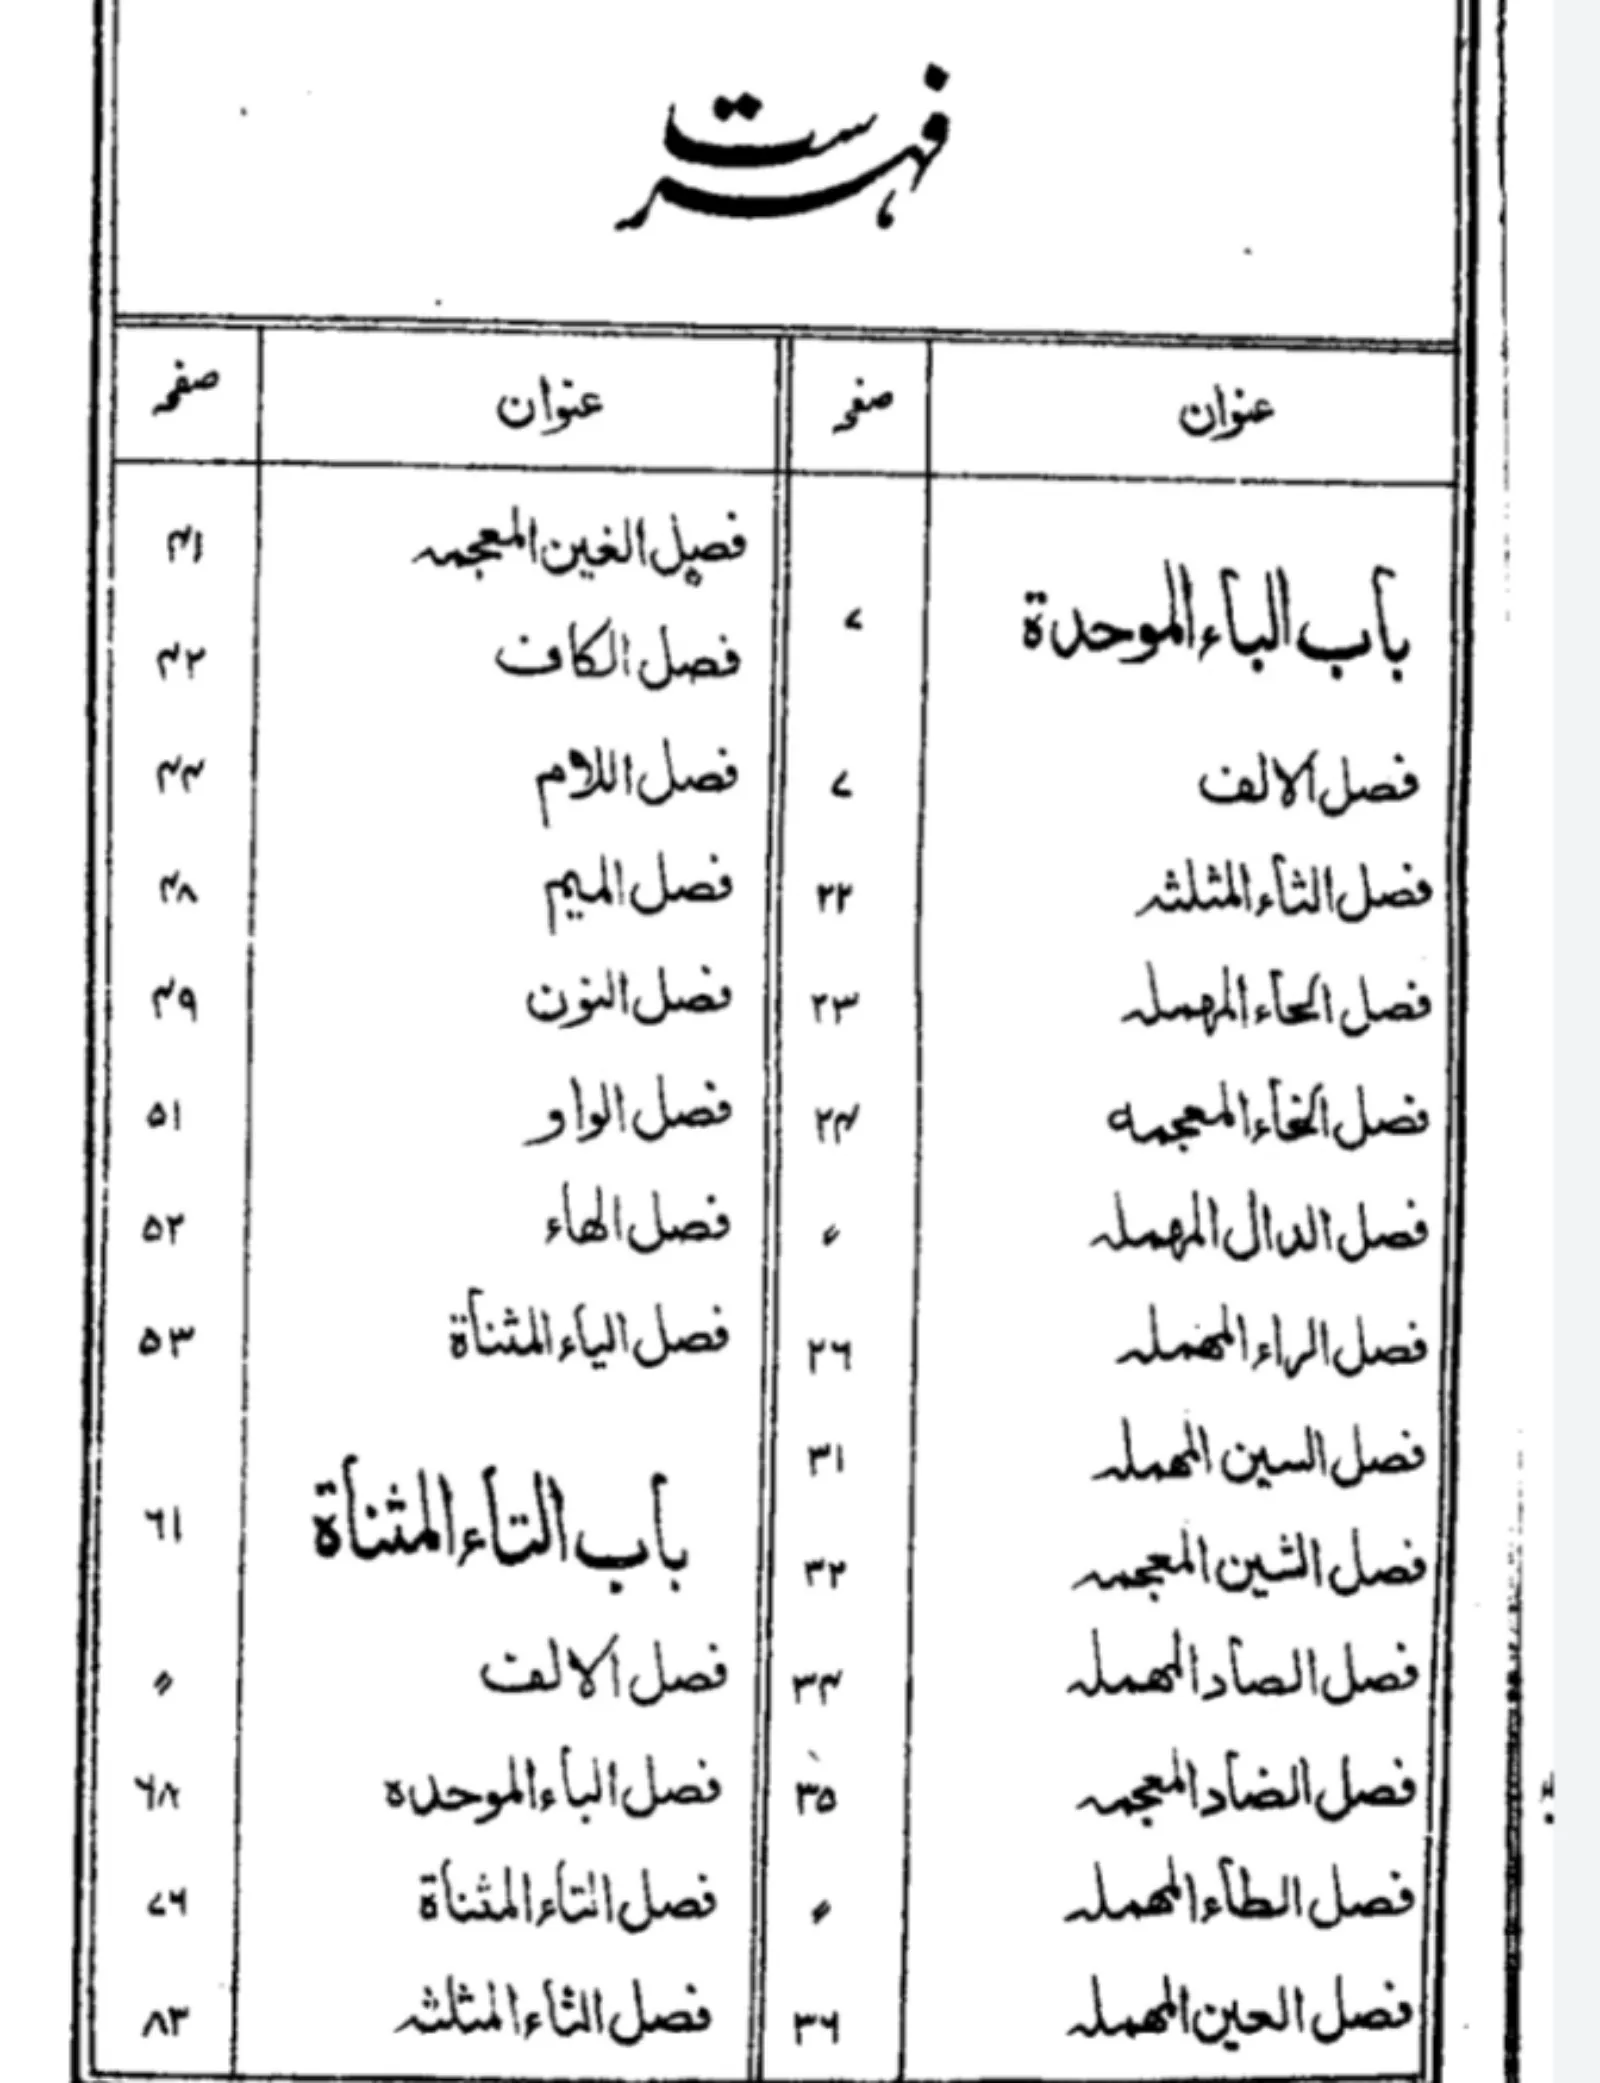 فہرست
عنوان صفحہ
باب الباء الموحدة ۷
فصل الالف ۷
فصل الثاء المثلثہ ۲۲
فصل الحاء المهملہ ۲۳
فصل الخاء المعجمه ۲۴
فصل الدال المهملہ 〃
فصل الراء المهملہ ۲۶
فصل السين المهملہ ۳۱
فصل الشين المعجمہ ۳۲
فصل الصاد المهملہ ۳۴
فصل الضاد المعجمہ ۳۵
فصل الطاء المهملہ 〃
فصل العين المهملہ ۳۶
عنوان صفحہ
فصل الغين المعجمہ ۴۱
فصل الكاف ۴۲
فصل اللام ۴۴
فصل الميم ۴۸
فصل النون ۴۹
فصل الواو ۵۱
فصل الهاء ۵۲
فصل الياء المثناة ۵۳
باب التاء المثناة ۶۱
فصل الالف 〃
فصل الباء الموحده ۶۸
فصل التاء المثناة ۷۶
فصل الثاء المثلثہ ۸۳